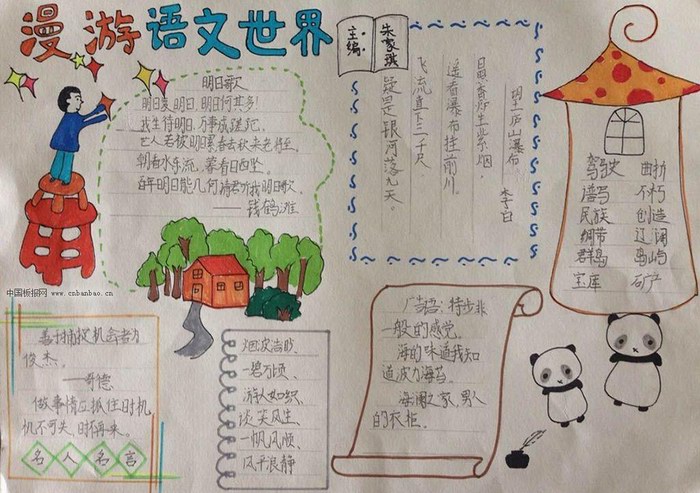 漫游语文世界
主编:
朱家琪
明日歌
明日复明日,明日何其多!
我生待明日,万事成蹉跎.
世人若被明日累,春去秋来老将至.
朝看水东流,暮看日西坠.
百年明日能几何请君听我明日歌.
——钱鹤滩
望庐山瀑布
李白
日照香炉生紫烟
遥看瀑布挂前川
飞流直下三千尺、
疑是银河落九天。
驾驶 曲折
谱写 不朽
民族 创造
绷带 辽阔
群岛 岛屿
宝库 矿产
中国板报网 www.cnbanbao.cn
善于捕捉机会者为
俊杰。
——哥德
做事情应抓住时机
机不可失,时不再来。
名人名言
烟波浩渺、
一碧万顷、
游人如织、
谈笑风生、
一帆风顺、
风平浪静
广告语:特步非
一般的感觉.
海的味道我知
道波力海苔.
海澜之家,男人
的衣柜.